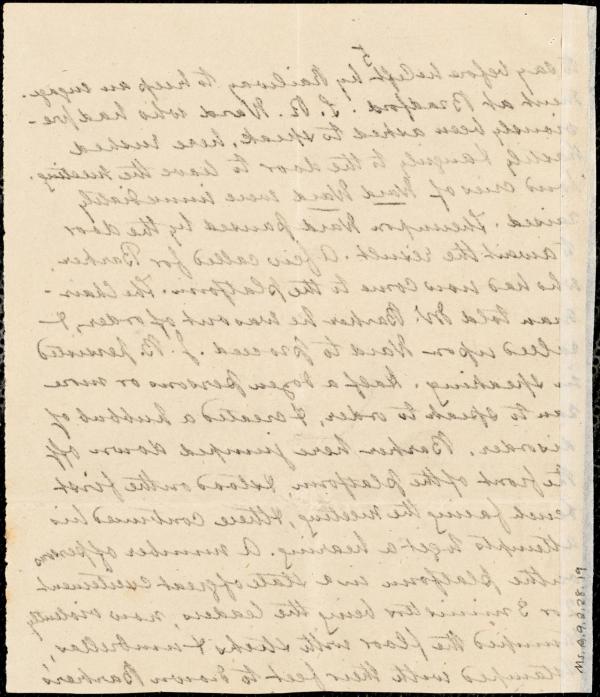 5
day before he left by Railway to keep an engage-
ment at Bradford. S. R. Ward who had pre-
viously been asked to speak, here rushed
hastily & angrily to the door to leave the Meeting.
Loud cries of Ward Ward were immediately
raised. Thereupon Ward paused by the door
to await the result. A few called for Barker.
who had now come to the platform. The Chair-
man told Mr. Barker he was out of order, &
called upon Ward to proceed. J. B. persisted
in speaking. Half a dozen persons or more
ran to speak to order, & created a hubbub of
disorder. Barker here jumped down off
the front of the platform, & stood on the first
bench facing the meeting, & there continued his
attempts to get a hearing. A number of persons
on the platform in a state of great excitement
2 or 3 ministers being the leaders, now violently
thumped the floor with sticks & umbrellas,
stamped with their feet to drown Barker's
Ms.A.9.2.28.19